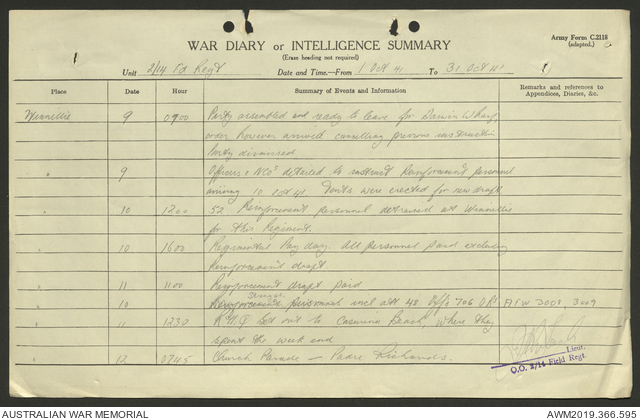 1
Army Form C.2118
(adapted.)
WAR DIARY or INTELLIGENCE SUMMARY
(Erase heading not required)
Unit 2/14 Fd Regt Date and Time.—From 1 Oct 41 To 31 Oct 41
Place Date Hour Summary of Events and Information Remarks and references to Appendices, Diaries, &c.
Winnellie 9 0900 Party assembled and ready to leave for Darwin Wharf,
order however arrived cancelling previous instruction
Party dismissed
9 Officers & NCOs detailed to instruct Reinforcement personnel
arriving 10 Oct 41. Tents were erected for new draft.
10 1200 52 Reinforcement personnel detrained at Winnellie
for this Regiment.
10 1600 Regimental Pay day. All personnel paid excluding
Reinforcement draft.
11 1100 Reinforcement draft paid
10 personnel 48 Offs 706 ORs AFW 3008, 3009
11 1230 set out to Casuarina Beach, where they
spent the week end
12 0745 Church Parade — Padre Richards.
Lieut.
O.O. 2/14 Field Regt.
AUSTRALIAN WAR MEMORIAL
AWM2019.366.595